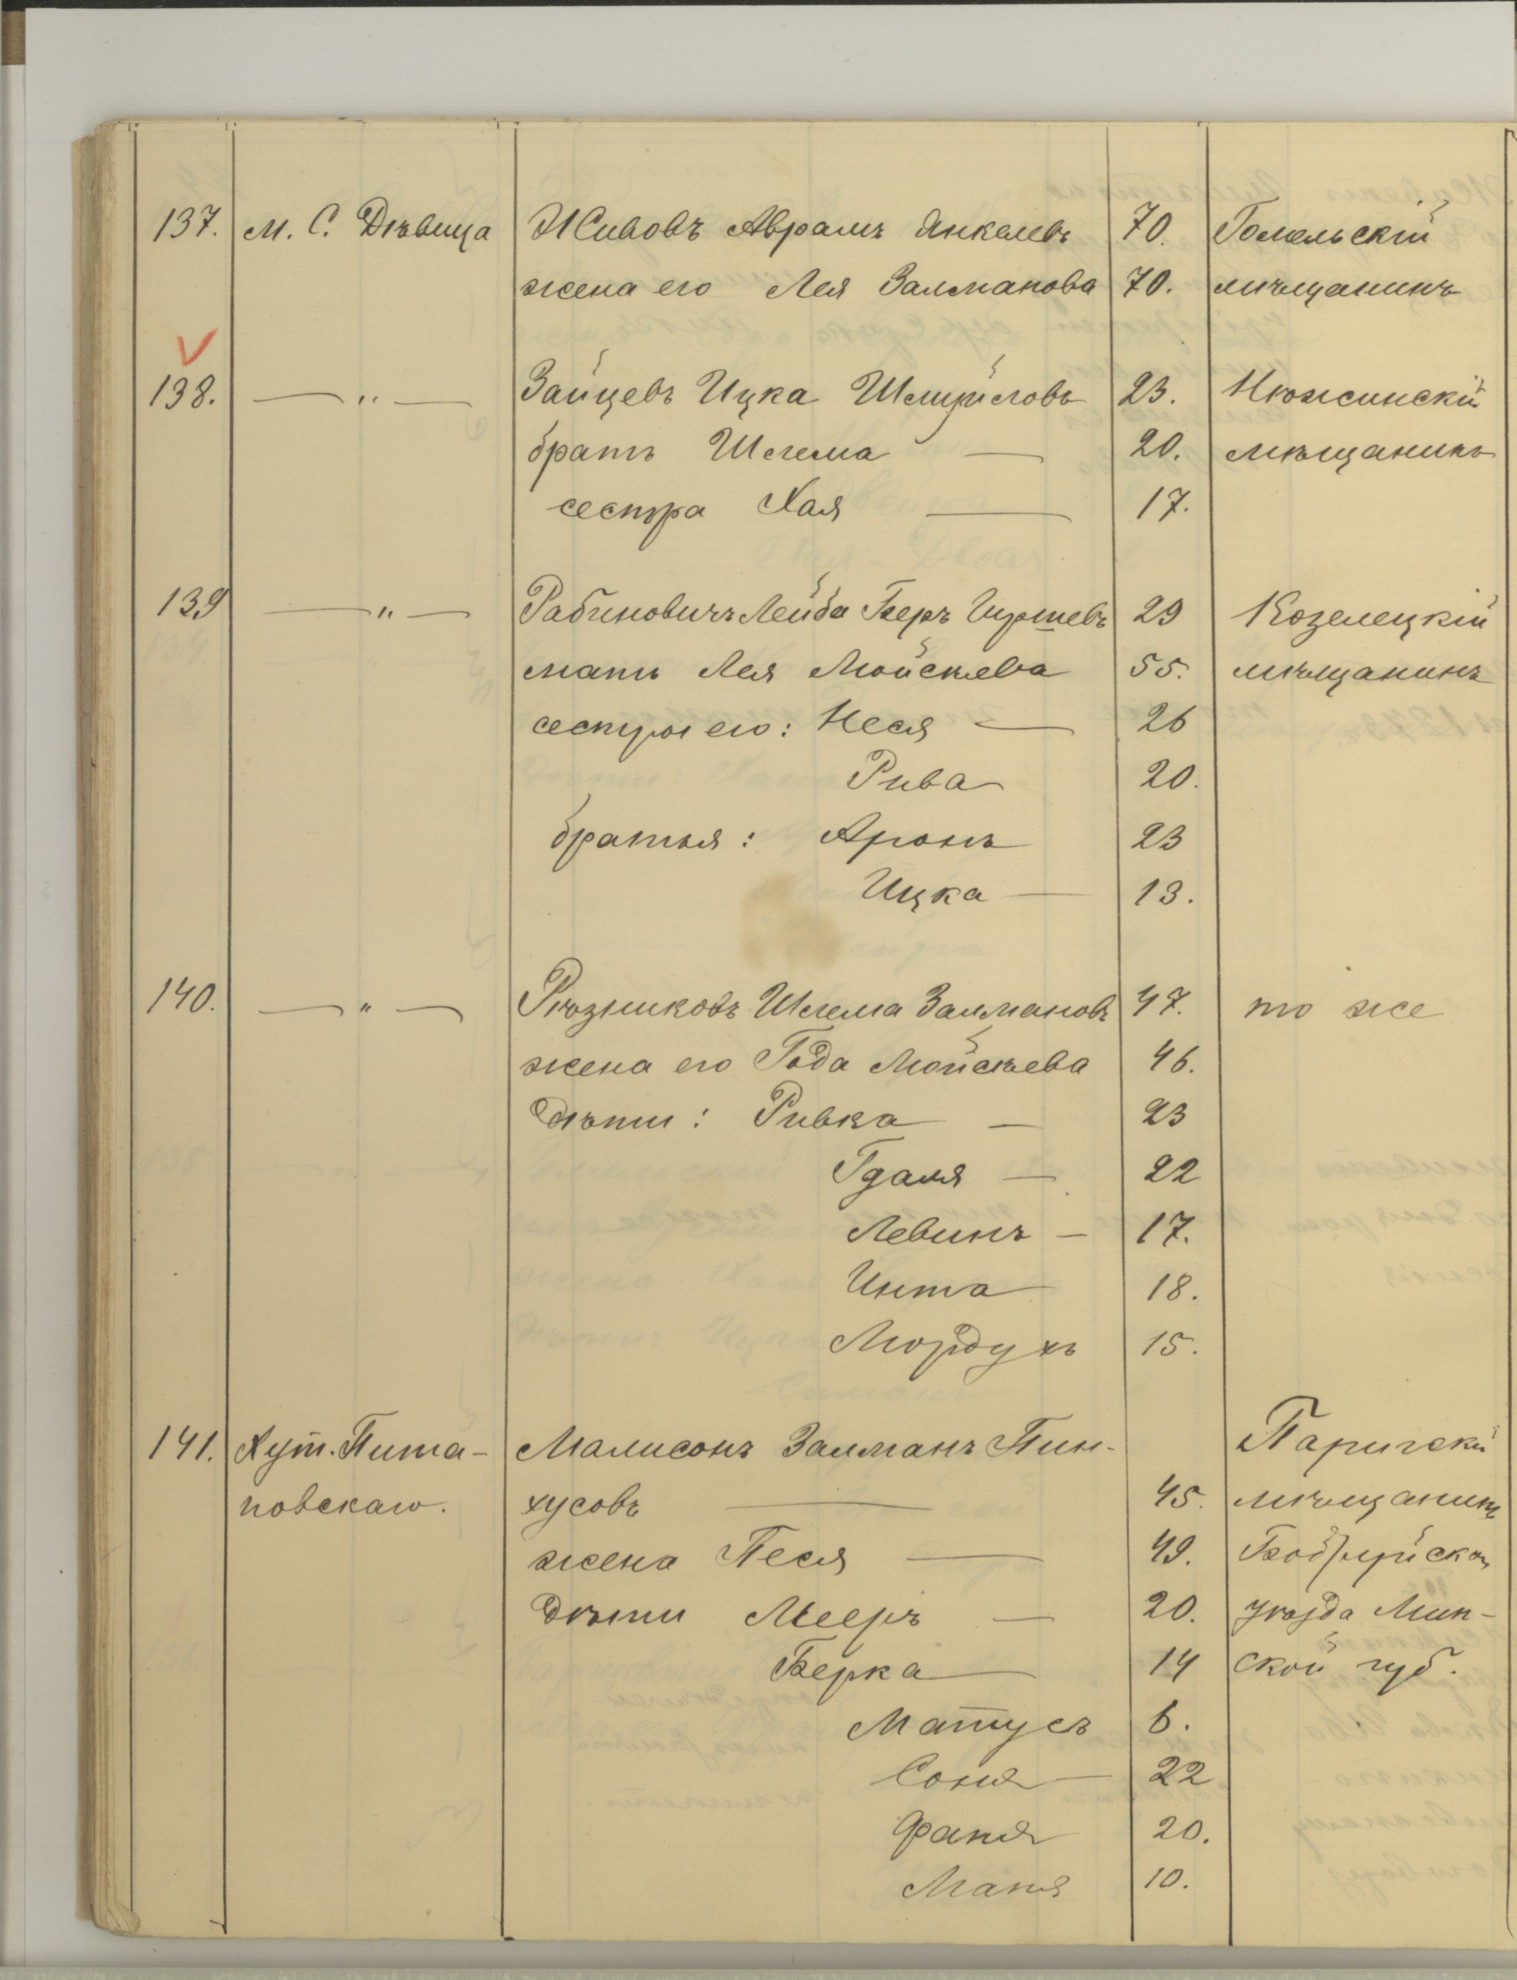 137. м. С. Дѣвица Живовъ Аврамъ Янкелевъ 70. Гомельскій
жена его Лея Залманова 70. мѣщанинъ
138. —„— Зайцевъ Ицка Шмуйловъ 23. Нѣжинскій
братъ Шлема — 20. мѣщанинъ
сестра Хая — 17.
139 —„— Рабиновичъ Лейба Беръ Гиршевъ 29 Козелецкій
мать Лея Мойсѣева 55. мѣщанинъ
сестры его: Неся — 26
Рива 20.
братья: Аронъ 23
Ицка — 13.
140. —„— Рѣзниковъ Шлема Залмановъ 47. то же
жена его Года Мойсѣева 46.
дѣти: Ривка — 23
Гдаля — 22
Левинъ — 17.
Инта 18.
Мордухъ 15.
141. Хут. Пита- Малисонъ Залманъ Пин- Паричскій
повскаго. хусовъ — 45. мѣщанинъ
жена Песя — 49. Бобруйскаго
дѣти Мееръ — 20. уѣзда Мин-
Берка — 14 ской губ.
Матусъ 6.
Соня — 22
Фаня 20.
Маня 10.